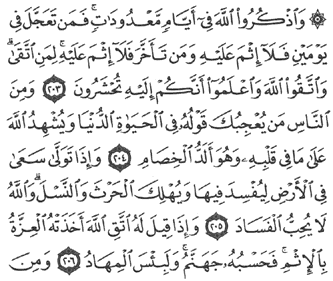 ۞ وَٱذْكُرُوا۟ ٱللَّهَ فِىٓ أَيَّامٍ مَّعْدُودَٰتٍ ۚ فَمَن تَعَجَّلَ فِى
يَوْمَيْنِ فَلَآ إِثْمَ عَلَيْهِ وَمَن تَأَخَّرَ فَلَآ إِثْمَ عَلَيْهِ ۚ لِمَنِ ٱتَّقَىٰ ۗ
وَٱتَّقُوا۟ ٱللَّهَ وَٱعْلَمُوٓا۟ أَنَّكُمْ إِلَيْهِ تُحْشَرُونَ ٢٠٣ وَمِنَ
ٱلنَّاسِ مَن يُعْجِبُكَ قَوْلُهُۥ فِى ٱلْحَيَوٰةِ ٱلدُّنْيَا وَيُشْهِدُ ٱللَّهَ
عَلَىٰ مَا فِى قَلْبِهِۦ وَهُوَ أَلَدُّ ٱلْخِصَامِ ٢٠٤ وَإِذَا تَوَلَّىٰ سَعَىٰ
فِى ٱلْأَرْضِ لِيُفْسِدَ فِيهَا وَيُهْلِكَ ٱلْحَرْثَ وَٱلنَّسْلَ ۗ وَٱللَّهُ
لَا يُحِبُّ ٱلْفَسَادَ ٢٠٥ وَإِذَا قِيلَ لَهُ ٱتَّقِ ٱللَّهَ أَخَذَتْهُ ٱلْعِزَّةُ
بِٱلْإِثْمِ ۚ فَحَسْبُهُۥ جَهَنَّمُ ۚ وَلَبِئْسَ ٱلْمِهَادُ ٢٠٦ وَمِنَ